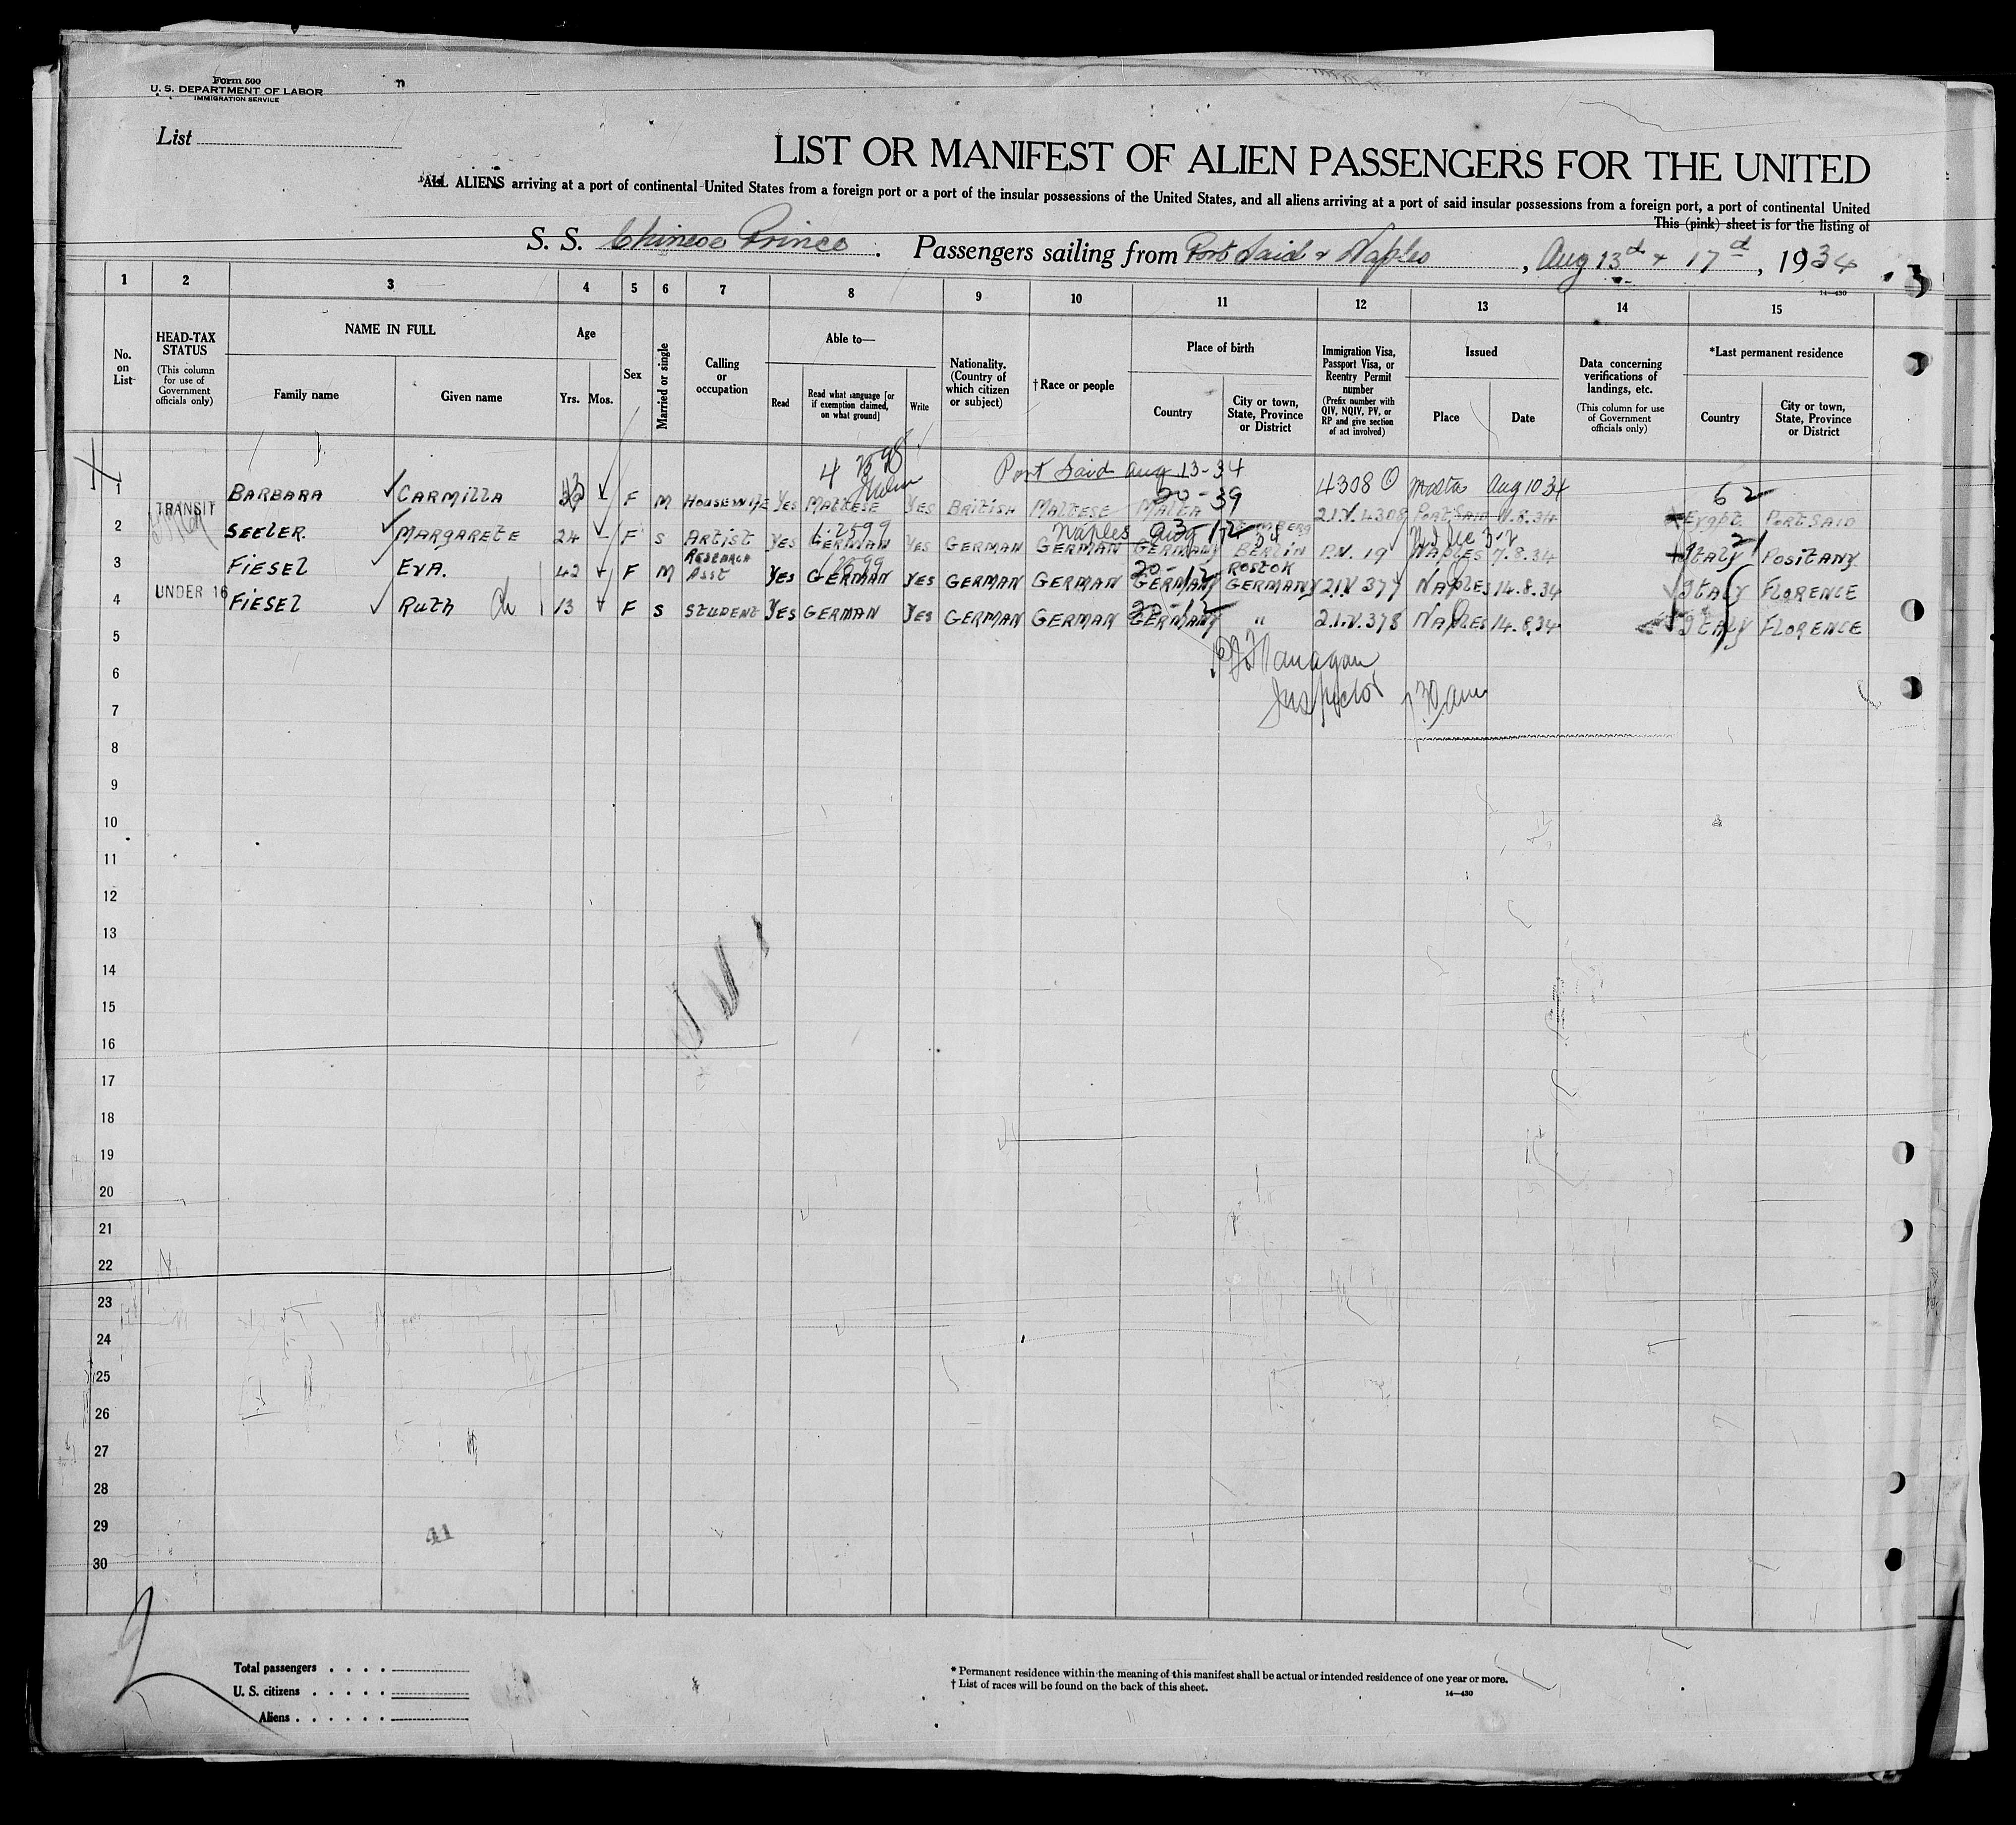 Form 500
U. S. DEPARTMENT OF LABOR
IMMIGRATION SERVICE
List
LIST OR MANIFEST OF ALIEN PASSENGERS FOR THE UNITED
ALL ALIENS arriving at a port of continental United States from a foreign port or a port of the insular possessions of the United States, and all aliens arriving at a port of said insular possessions from a foreign port, a port of continental United
This (pink) sheet is for the listing of
S. S. Chinese Prince. Passengers sailing from Port Said & Naples, Aug 13d & 17d, 1934
14—430
1 2 3 4 5 6 7 8 9 10 11 12 13 14 15
No. on List
HEAD-TAX STATUS
(This column for use of Government officials only)
NAME IN FULL
Family name
Given name
Age
Yrs. Mos.
Sex
Married or single
Calling or occupation
Able to—
Read
Read what language [or if exemption claimed, on what ground]
Write
Nationality. (Country of which citizen or subject)
† Race or people
Place of birth
Country
City or town, State, Province or District
Immigration Visa, Passport Visa, or Reentry Permit number
(Prefix number with QIV, NQIV, PV, or RP and give section of act involved)
Issued
Place
Date
Data concerning verifications of landings, etc.
(This column for use of Government officials only)
*Last permanent residence
Country
City or town, State, Province or District
Port Said Aug 13-34
4308 Malta Aug 10 34
20-39 62
1 TRANSIT BARBARA CARMILLA F M HOUSEWIFE YES MALTESE YES BRITISH MALTESE MALTA 2I.V.4308 PORT SAID 8.34 EYGPT PORT SAID
Naples Aug
2 SEELER. MARGARETE 24 F S ARTIST YES GERMAN YES GERMAN GERMAN GERMANY BERLIN P.V. 19 NAPLES 7.8.34 ITALY POSITANY
3 FIESEL EVA. 42 F M RESEARCH ASST YES GERMAN YES GERMAN GERMAN GERMANY ROSTOK GERMANY 2I.V 377 NAPLES 14.8.34 ITALY FLORENCE
20-12
4 UNDER 16 FIESEL RUTH 13 F S STUDENT YES GERMAN YES GERMAN GERMAN GERMANY " 2.I.V. 378 NAPLES 14.8.34 ITALY FLORENCE
5
6
Inspector
7
8
9
10
11
12
13
14
15
16
17
18
19
20
21
22
23
24
25
26
27
28
29
41
30
Total passengers
U. S. citizens
Aliens
* Permanent residence within the meaning of this manifest shall be actual or intended residence of one year or more.
† List of races will be found on the back of this sheet.
14—430